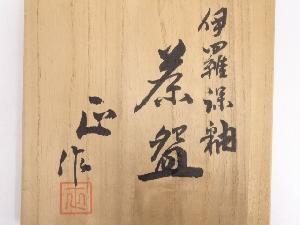 伊羅保釉
茶盌
正作